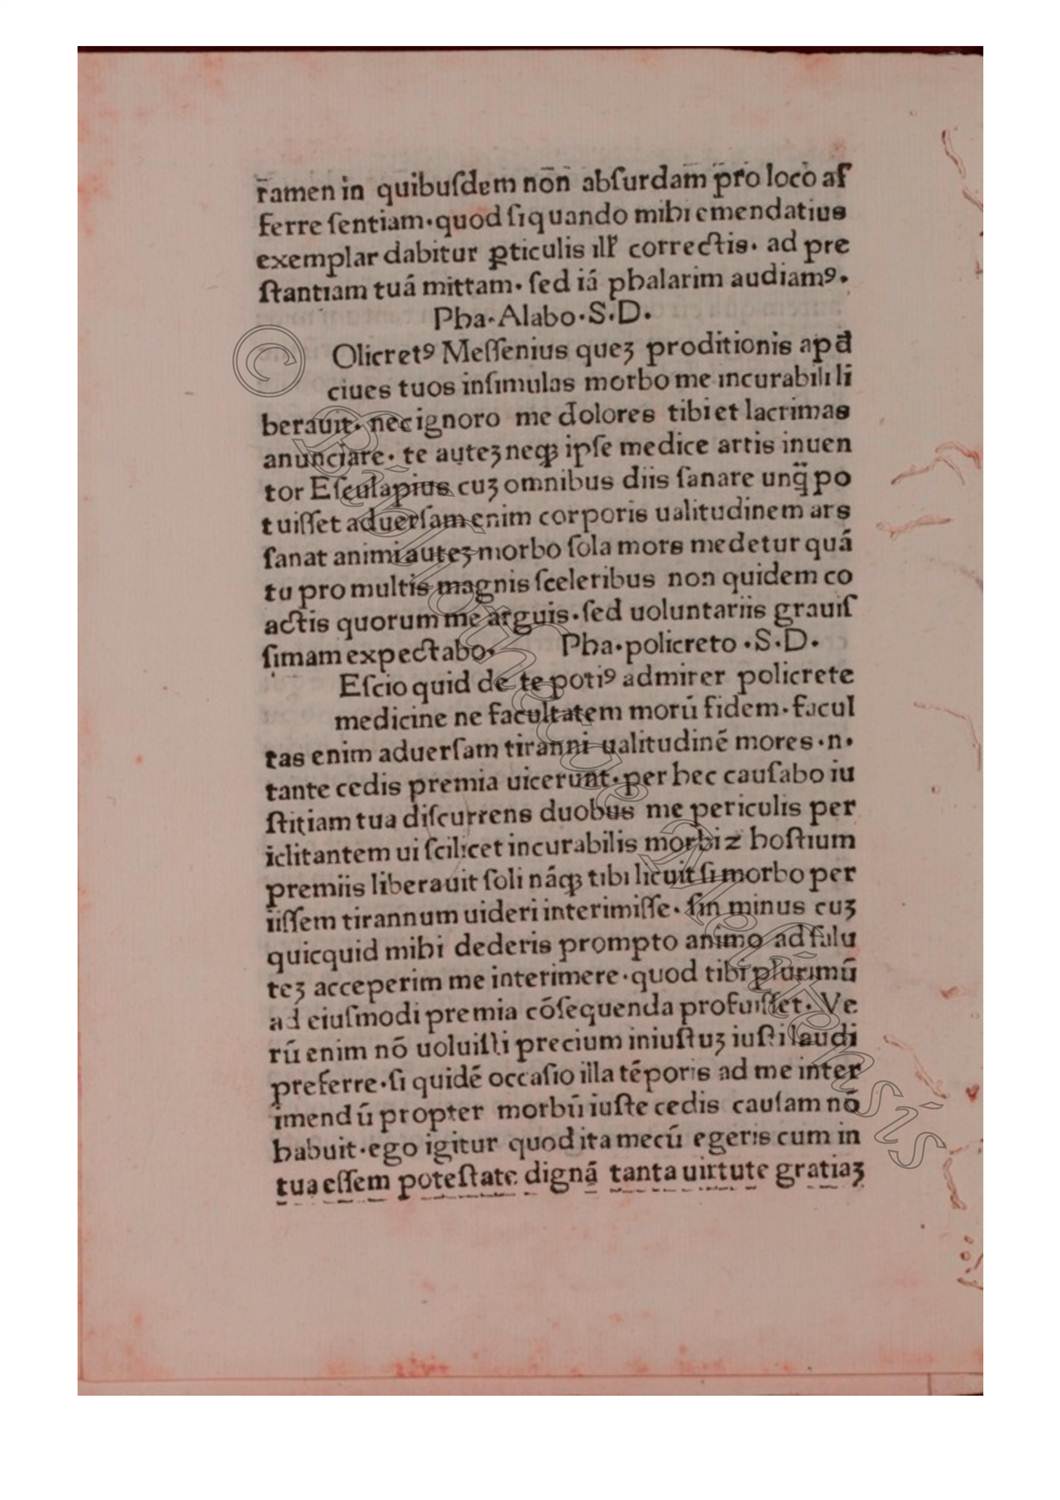 tamen in quibuſdem non̄ abſurdam p̄ro loco af
ferre ſentiam·quod ſiquando mihi emendatius
exemplar dabitur ꝑticulis ill' correctis· ad pre
ſtantiam tuā mittam· ſed iā phalarim audiamꝰ·
Pha·Alabo·S·D·
Olicretꝰ Meſſenius queꝫ proditionis apđ
ciues tuos inſimulas morbo me incurabili li
berauit· nec ignoro me dolores tibi et lacrimas
anunciare· te auteꝫ neqꝫ ipſe medice artis inuen
tor Eſculapius cuꝫ omnibus diis ſanare unq̄ po
tuiſſet aduerſam enim corporis ualitudinem ars
ſanat animi auteꝫ morbo ſola mors medetur quā
tu pro multis magnis ſceleribus non quidem co
actis quorum me arguis·ſed uoluntariis grauiſ
ſimam expectabo· Pha·policreto·S·D·
Eſcio quid de te potiꝰ admirer policrete
medicine ne facultatem morū fidem·facul
tas enim aduerſam tiranni ualitudinē mores·n·
tante cedis premia uicerunt·per hec cauſabo iu
ſtitiam tua diſcurrens duobus me periculis per
iclitantem ui ſcilicet incurabilis morbi ⁊ hoſtium
premiis liberauit ſoli nāqꝫ tibi licuit ſi morbo per
iiſſem tirannum uideri interimiſſe· ſin minus cuꝫ
quicquid mihi dederis prompto animo ad ſalu
teꝫ acceperim me interimere·quod tibi plurimū
ad eiuſmodi premia cōſequenda profuiſſet· Ve
rū enim nō uoluiſti precium iniuſtuꝫ iuſti laudi
preferre·ſi quidē occaſio illa tēporis ad me inter
imendū propter morbū iuſte cedis cauſam nō
habuit·ego igitur quod ita mecū egeris cum in
tua eſſem poteſtate dignā tanta uirtute gratiaꝫ
© Bibliothecae Dalefiphsis